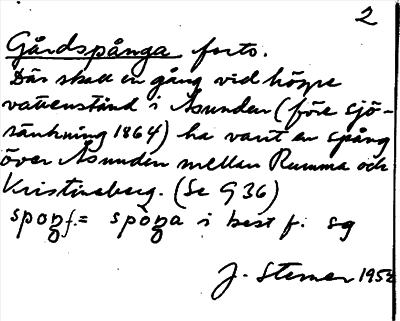 2
Gårdspånga forts.
Där skall en gång vid högre
vattenstånd i Åsunden (före sjö-
sänkning 1864) ha varit en spång
över Åsunden mellan Rumma och
Kristineberg. (Se G 36)
spoŋ f. = spòŋa i best f. sg
J. Sterner 1952